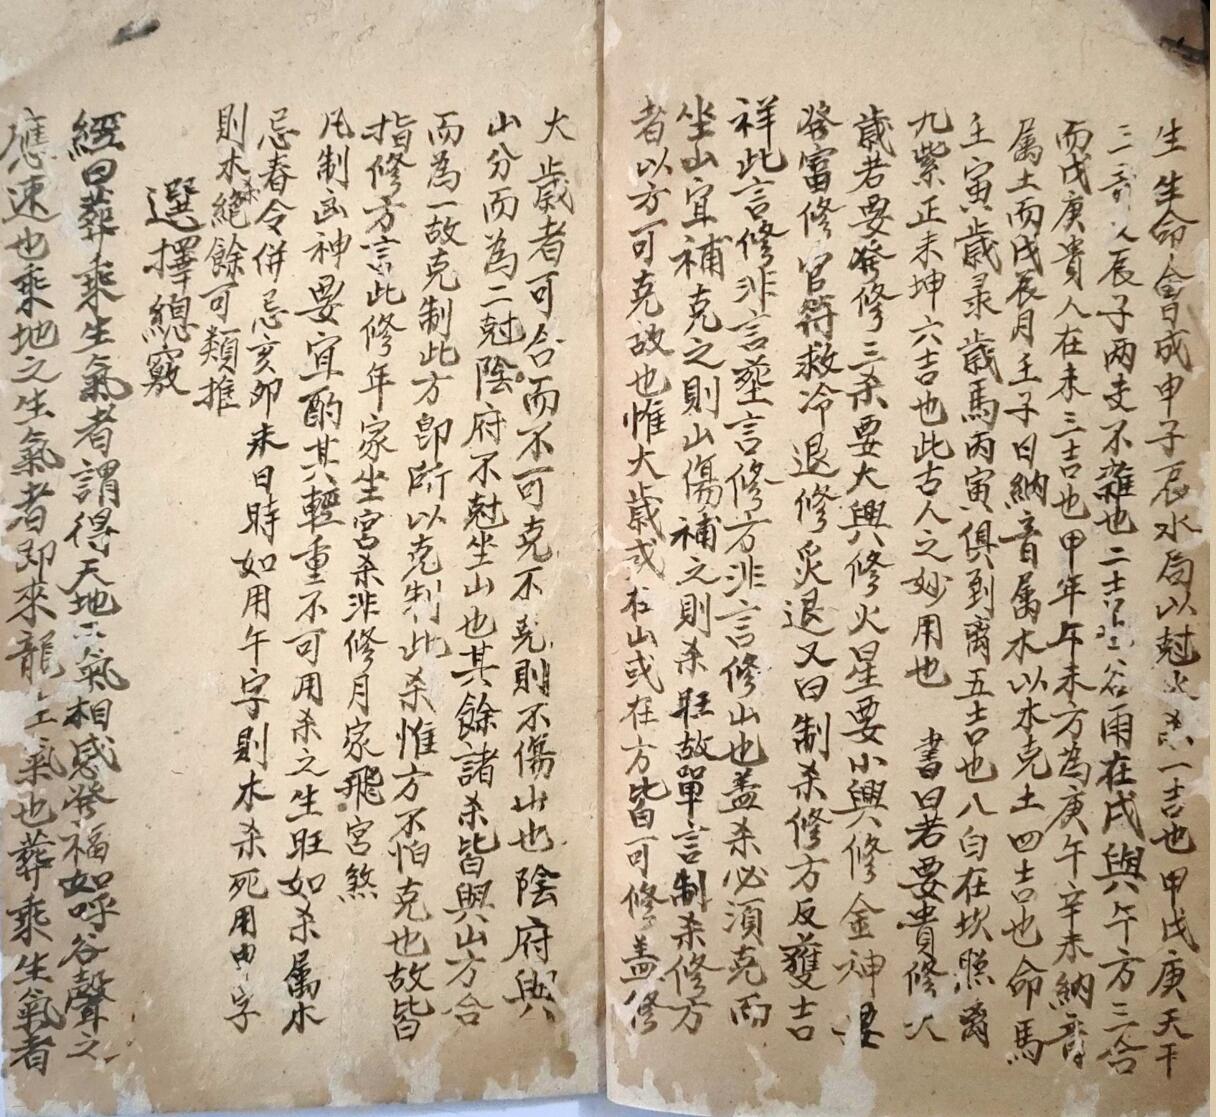 生生命會成申子辰水局以尅火杀一吉也甲戊庚天干
三奇人辰子两支不雜也二吉谷雨在戌與午方三合
而戊庚貴人在未三吉也甲年午未方為庚午辛未納音
属土而戊辰月壬子日納音属木以水克土四吉也命馬
壬寅歲录歲馬丙寅俱到离五吉也八白在坎照离
九紫正未坤六吉也此古人之妙用也 書曰若要貴修
歲若要發修三杀要大興修火星要小興修金神要
發富修官符救冷退修炙退又曰制杀修方反獲吉
祥此言修非言塟言修方非言修山也盖杀必須克而
坐山宜補克之則山傷補之則杀旺故單言制杀修方
者以方可克故也惟大歲或在山或在方皆可修盖修
大歲者可合而不可克不克則不傷山也陰府與
山分而為二尅陰府不尅坐山也其餘諸杀皆與山方合
而為一故克制此方即所以克制此杀惟方不怕克也故皆
指修方言此修年家坐宮杀非修月家飛宮煞
凡制凶神要宜酌其輕重不可用杀之生旺如杀属水
忌春令併忌亥卯未日時如用午字則木杀死用申字
則木絕餘可類推
選擇總竅
經曰葬乘生氣者謂得天地之氣相感發福如呼谷聲之
應速也乘地之生氣者即來龍生氣也葬乘生氣者